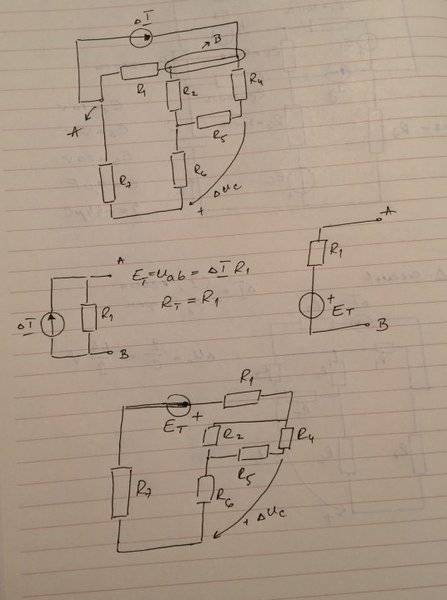 ΔI
B
R1
R2
R4
A
R5
R7
R6
+ ΔUc
A
ET = Uab = ΔI R1
ΔI
R1
RT = R1
B
A
R1
+
ET
B
R1
ET +
R2
R4
R5
R7
R6
+ ΔUc